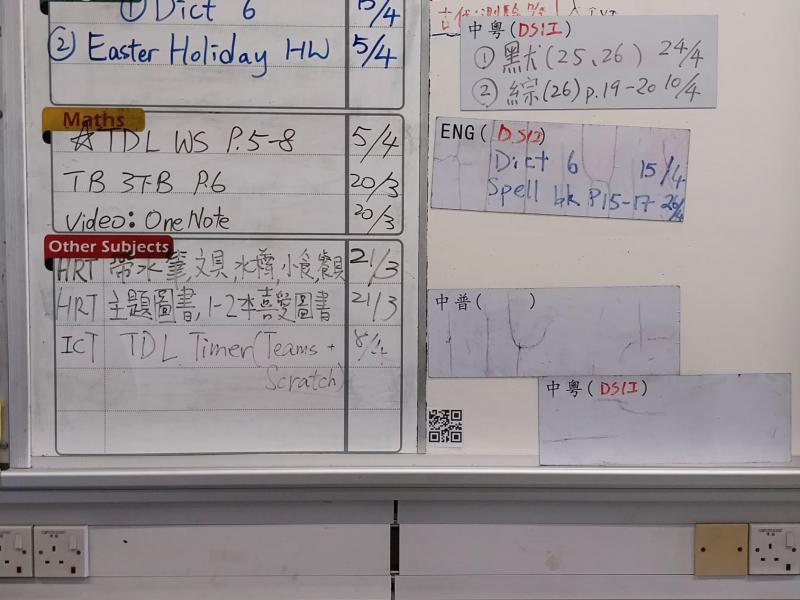 ① Dict 6
② Easter Holiday HW 5/4
Maths
☆TDL WS P.5-8 5/4
TB 3下B P.6 20/3
Video: OneNote 20/3
Other Subjects
HRT 帶水筆,文具,水樽,小食,餐具 21/3
HRT 主題圖書,1-2本喜愛圖書 21/3
ICT TDL Timer(Teams +
Scratch)
中粵(DSII)
① 默犬(25、26) 24/4
② 綜(26) p.19-20 10/4
ENG(DSII)
Dict 6 15/4
Spell bk P15-17 26/4
中普( )
中粵(DSII)